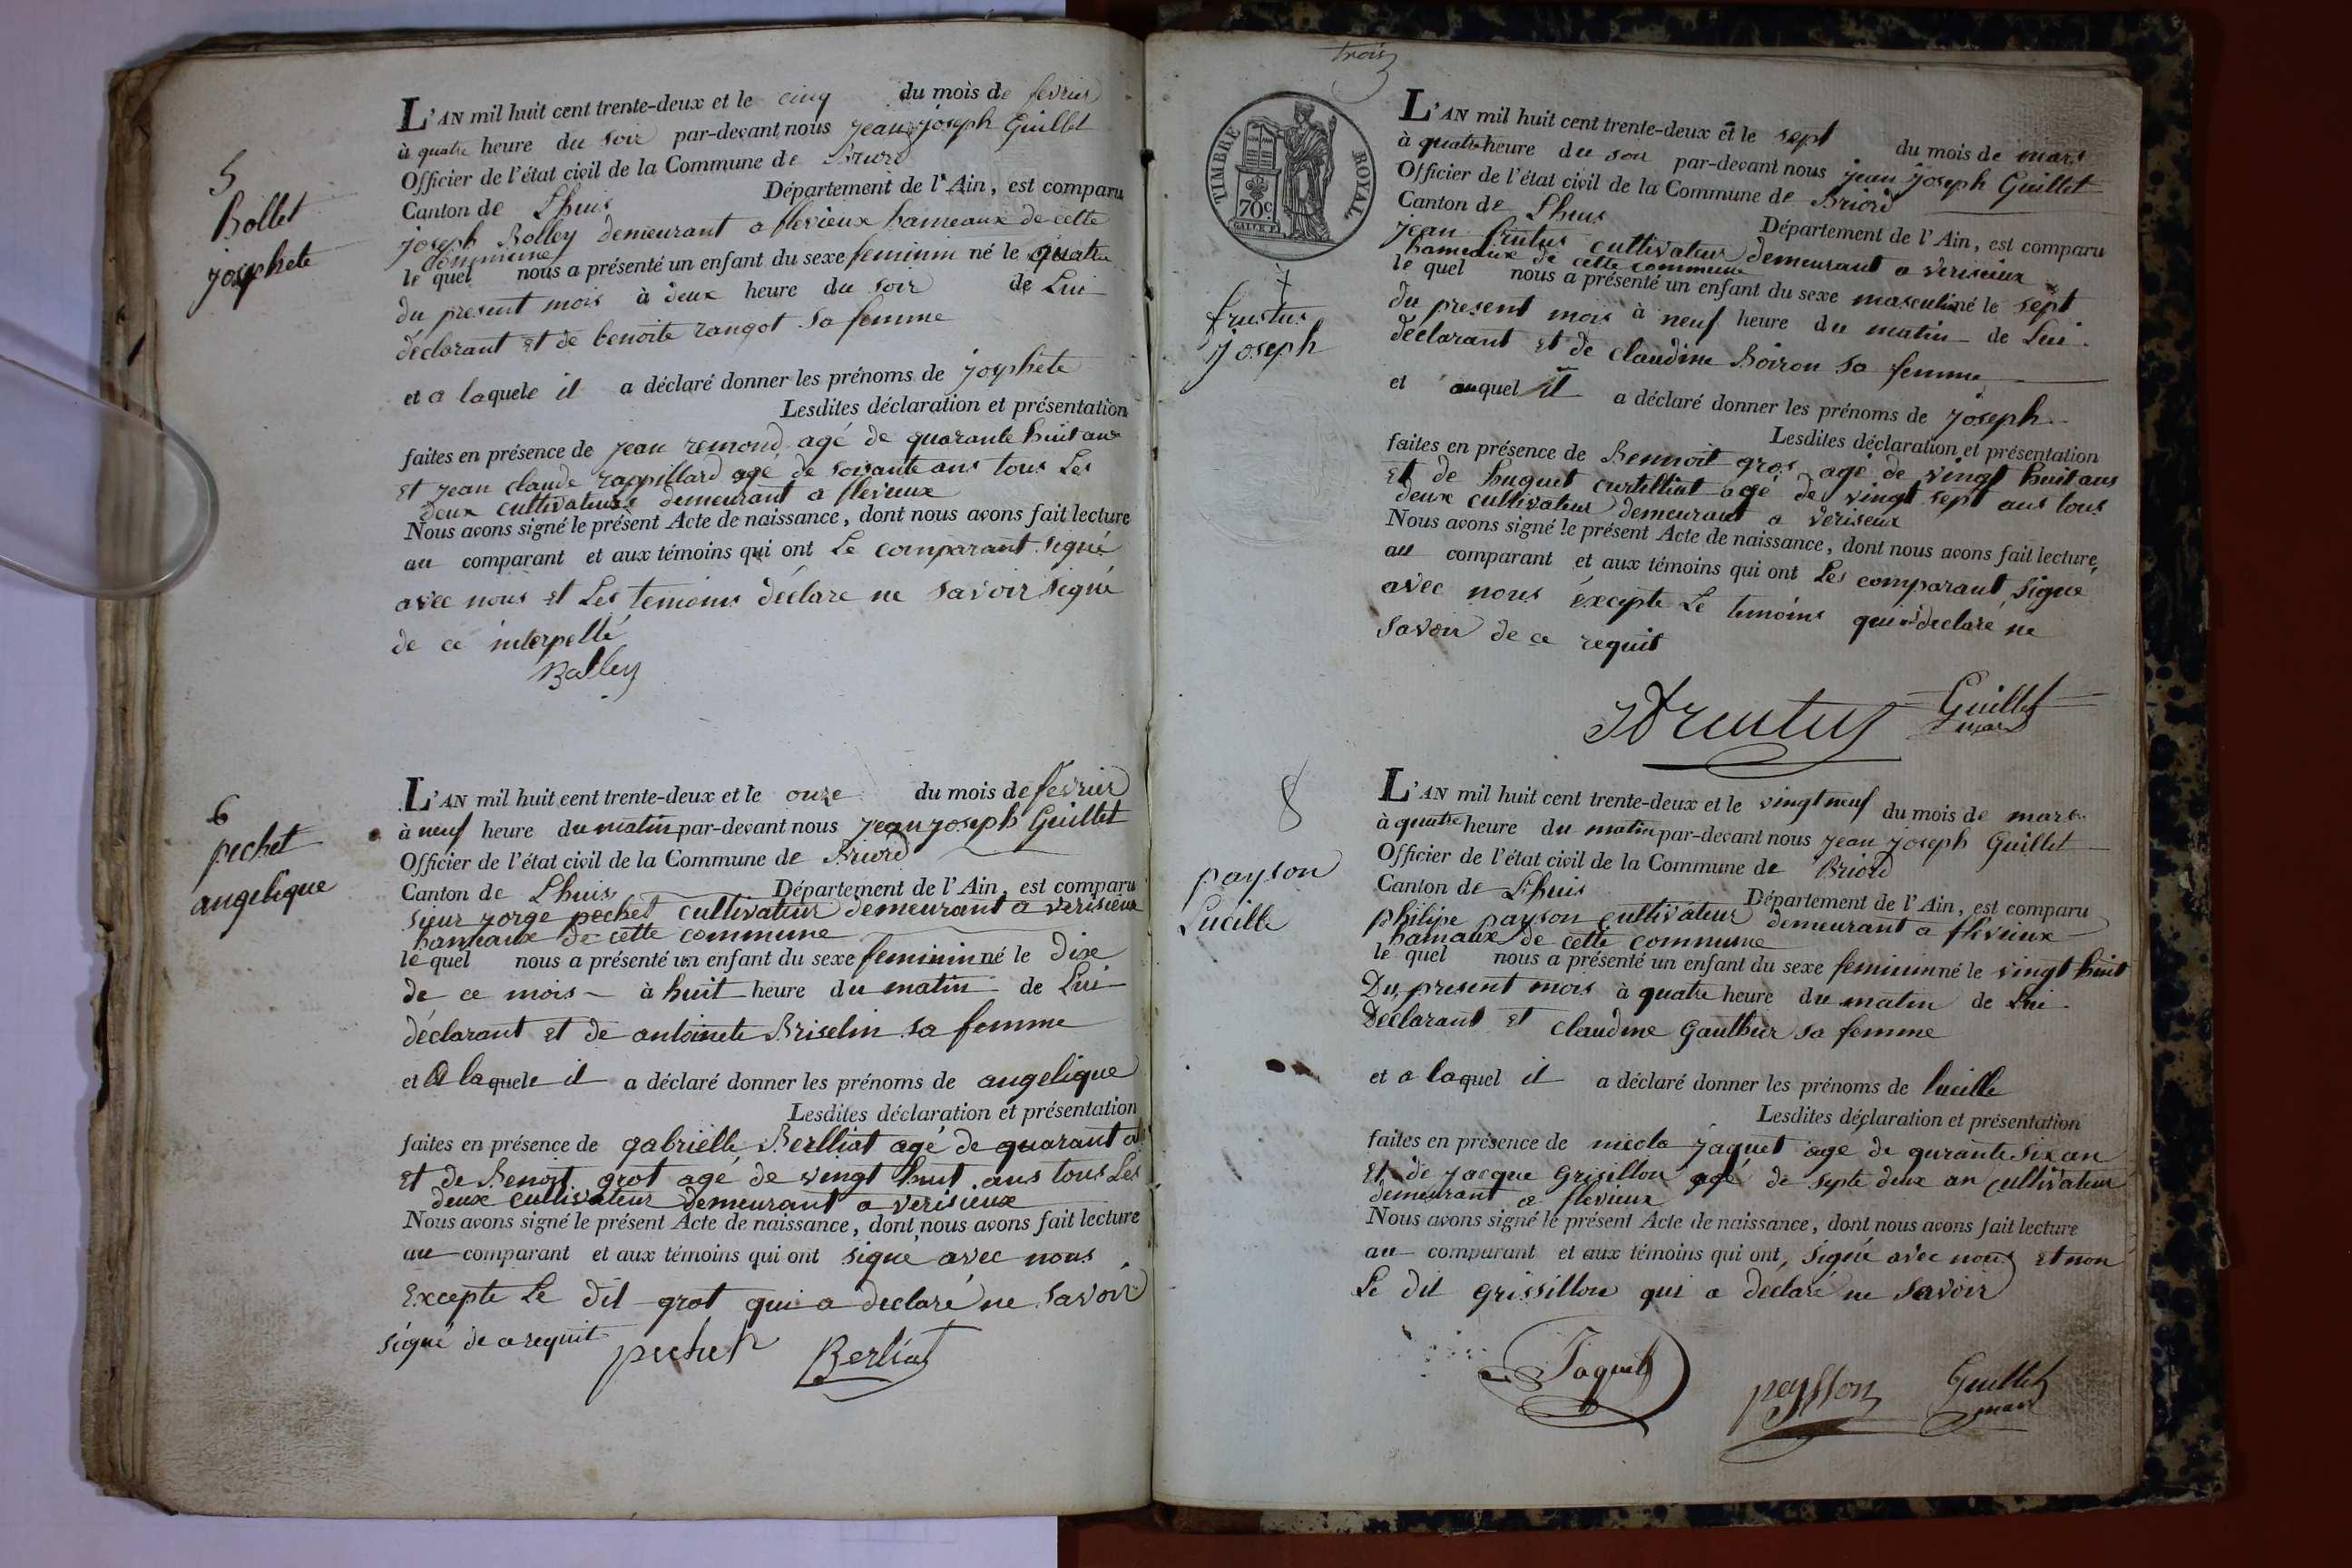 5
Bollet
josephete
L'AN mil huit cent trente-deux et le cinq du mois de fevrier
à quatre heure du soir par-devant nous jean joseph Guillet
Officier de l'état civil de la Commune de Briord
Canton de Lhuis Département de l'Ain, est comparu
joseph Bolley demeurant a flevieux hameaux de cette
commune
le quel nous a présenté un enfant du sexe feminin né le quatre
du present mois à deux heure du soir de Lui
déclarant et de benoite rangot sa femme
et a laquele il a déclaré donner les prénoms de josephete
Lesdites déclaration et présentation
faites en présence de jean remond agé de quarante huit ans
et jean claude rappillard agé de soisante ans tous Les
deux cultivateurs demeurant a flevieux
Nous avons signé le présent Acte de naissance, dont nous avons fait lecture
au comparant et aux témoins qui ont Le comparant signé
avec nous et Les temoins déclare ne savoir signé
de ce interpellé
Bolley
6
pechet
angelique
L'AN mil huit cent trente-deux et le onze du mois de fevrier
à neuf heure du matin par-devant nous jean joseph Guillet
Officier de l'état civil de la Commune de Briord
Canton de Lhuis Département de l'Ain, est comparu
sieur jorge pechet cultivateur demeurant a verisieux
hameaux de cette commune
le quel nous a présenté un enfant du sexe feminin né le dixe
de ce mois à huit heure du matin de Lui
déclarant et de antoinete Briselin sa femme
et a laquele il a déclaré donner les prénoms de angelique
Lesdites déclaration et présentation
faites en présence de gabrielle Berlliat agé de quarant a
et de Benoit grot agé de vingt huit ans tous Les
deux cultivateur demeurant a verisieux
Nous avons signé le présent Acte de naissance, dont nous avons fait lecture
au comparant et aux témoins qui ont signé avec nous
Excepte Le dit grot qui a declaré ne savoir
signé de ce requit
pechet Berliat
trois
TIMBRE ROYAL
70c
7
frustus
joseph
L'AN mil huit cent trente-deux et le sept du mois de mars
à quatre heure du soir par-devant nous jean joseph Guillet
Officier de l'état civil de la Commune de Briord
Canton de Lhuis Département de l'Ain, est comparu
jean frutus cultivateur demeurant a verisieux
hameaux de cette commune
le quel nous a présenté un enfant du sexe masculin né le sept
du present mois à neuf heure du matin de Lui
déclarant et de claudine Boiron sa femme
et auquel il a déclaré donner les prénoms de joseph
Lesdites déclaration et présentation
faites en présence de Bennoit gros agé de vingt huit ans
et de huguet curtelliat agé de vingt sept ans tous
deux cultivateur demeurant a veriseux
Nous avons signé le présent Acte de naissance, dont nous avons fait lecture
au comparant et aux témoins qui ont Les comparant signé
avec nous éxcepte Le temoins qui declaré ne
savoir de ce requit
frutus Guillet
maire
8
payson
Lucille
L'AN mil huit cent trente-deux et le vingt neuf du mois de mars
à quatre heure du matin par-devant nous jean joseph Guillet
Officier de l'état civil de la Commune de Briord
Canton de Lhuis Département de l'Ain, est comparu
philipe payson cultivateur demeurant a flevieux
hamaux de cette commune
le quel nous a présenté un enfant du sexe feminin né le vingt huit
Du present mois à quatre heure du matin de Lui
Déclarant et claudine Gauthier sa femme
et a laquel il a déclaré donner les prénoms de lucille
Lesdites déclaration et présentation
faites en présence de nicola jaquet agé de qurante six an
et de jacque Grisillon agé de septe deux an cultivateur
demeurant a flevieux
Nous avons signé le présent Acte de naissance, dont nous avons fait lecture
au comparant et aux témoins qui ont, signé avec nous et non
Le dit grissillon qui a declaré ne savoir
Jaquet paysson Guillet
maire